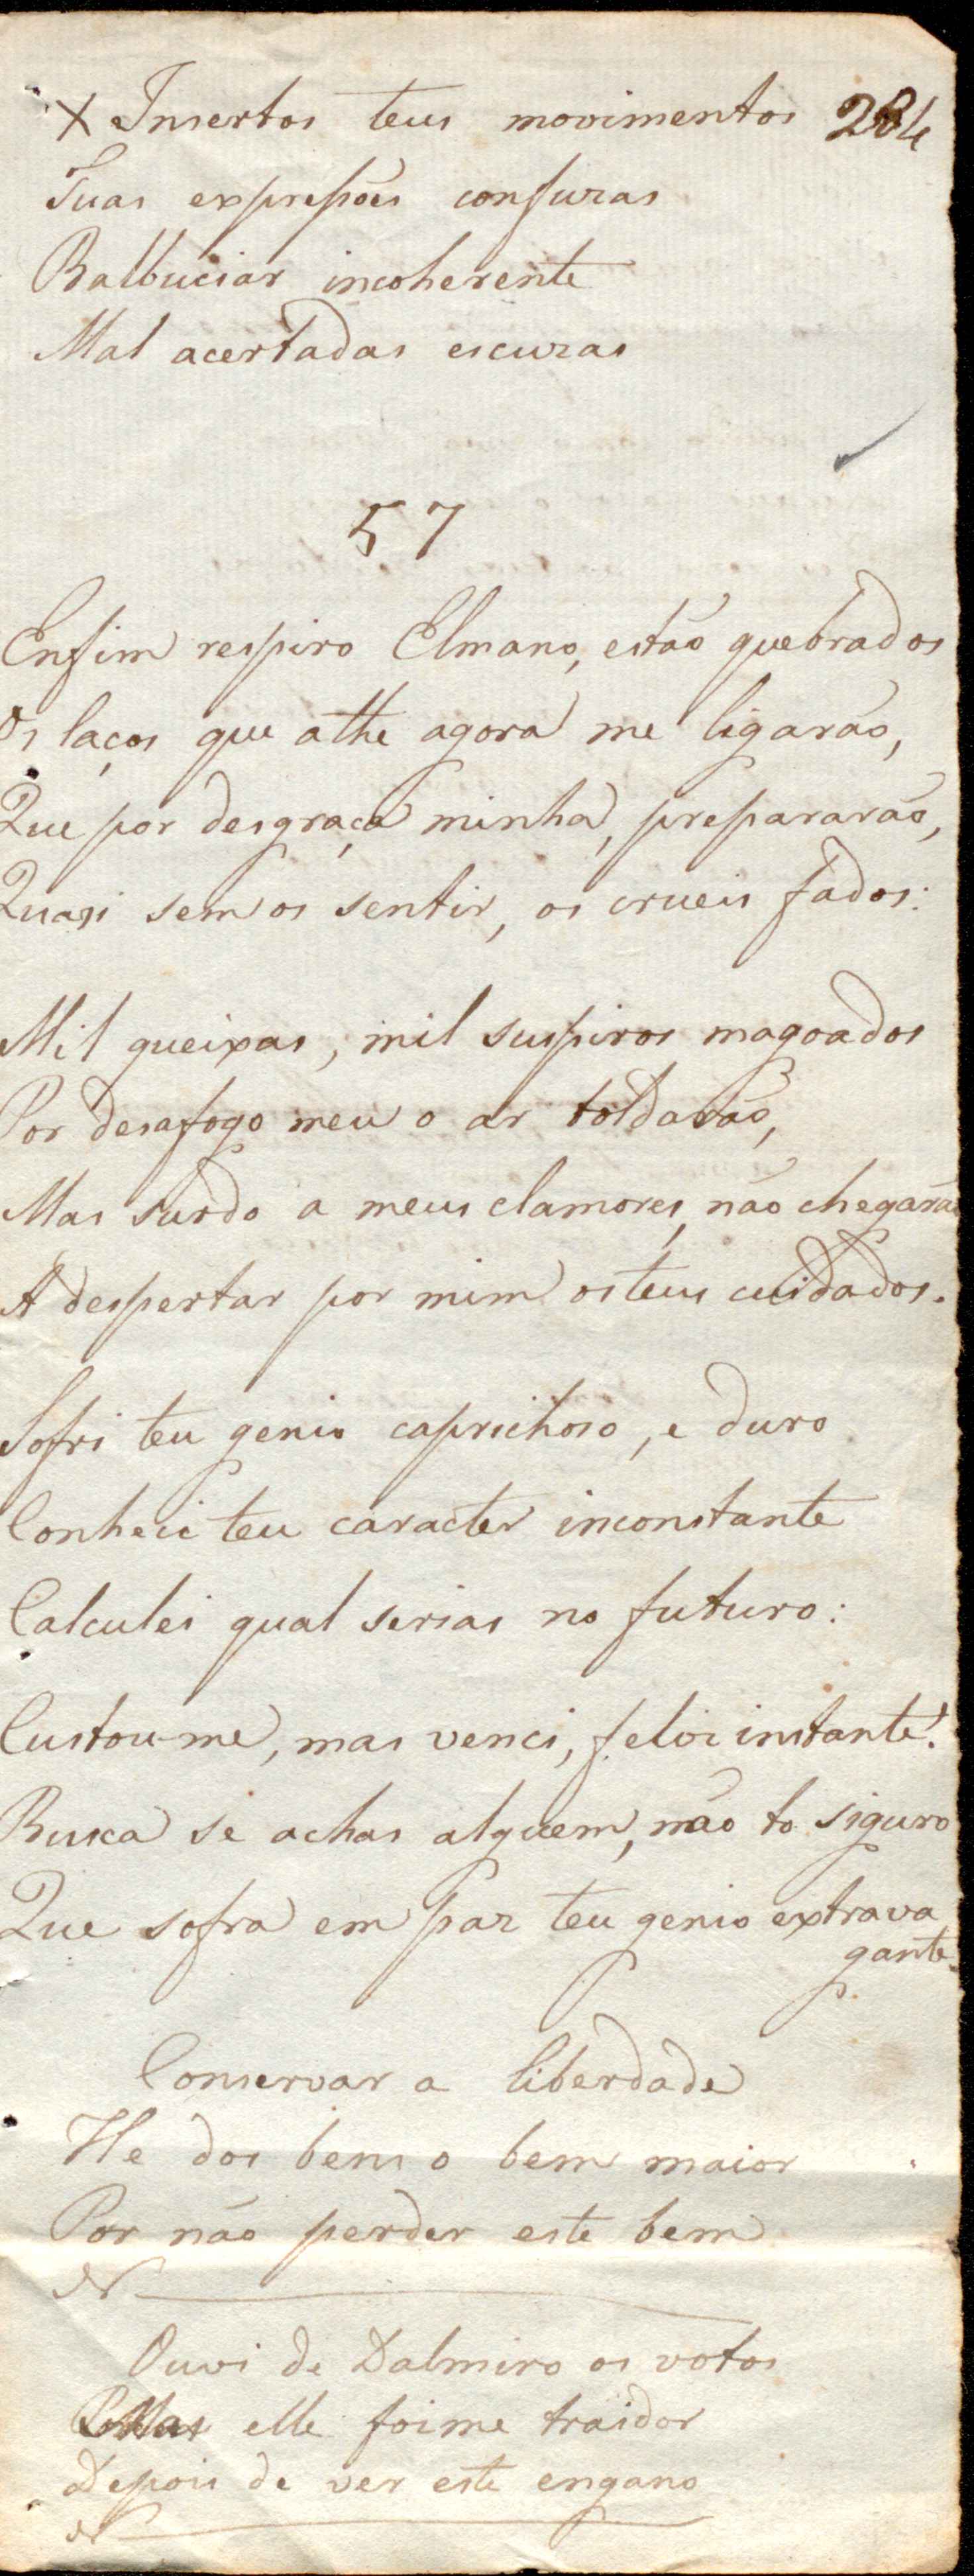 X Insertos teus movimentos 284
Tuas expreſsões confuzas
Balbuciar incoherente
Mal acertadas escuzas
57
Enfim respiro Elmano, estão quebrados
Os laços que athe agora me ligarão,
Que por desgraça minha, prepararão,
Quasi sem os sentir, os crueis fados:
Mil queixas, mil suspiros magoados
Por desafogo meu o ar toldarão,
Mas surdo a meus clamores, não chegarão
A despertar por mim os teus cuidados.
Sofri teu genio caprichoso, e duro
Conheci teu caracter inconstante
Calculei qual serias no futuro:
Custou-me, mas venci, feliz instante!
Busca se achas alguem, não to siguro
Que sofra em paz teu genio extrava
gante.
Conservar a liberdade
He dos bens o bem maior
Por não perder este bem
N
Ouvi de Dalmiro os votos
Mas elle foime traidor
Depois de ver este engano
N